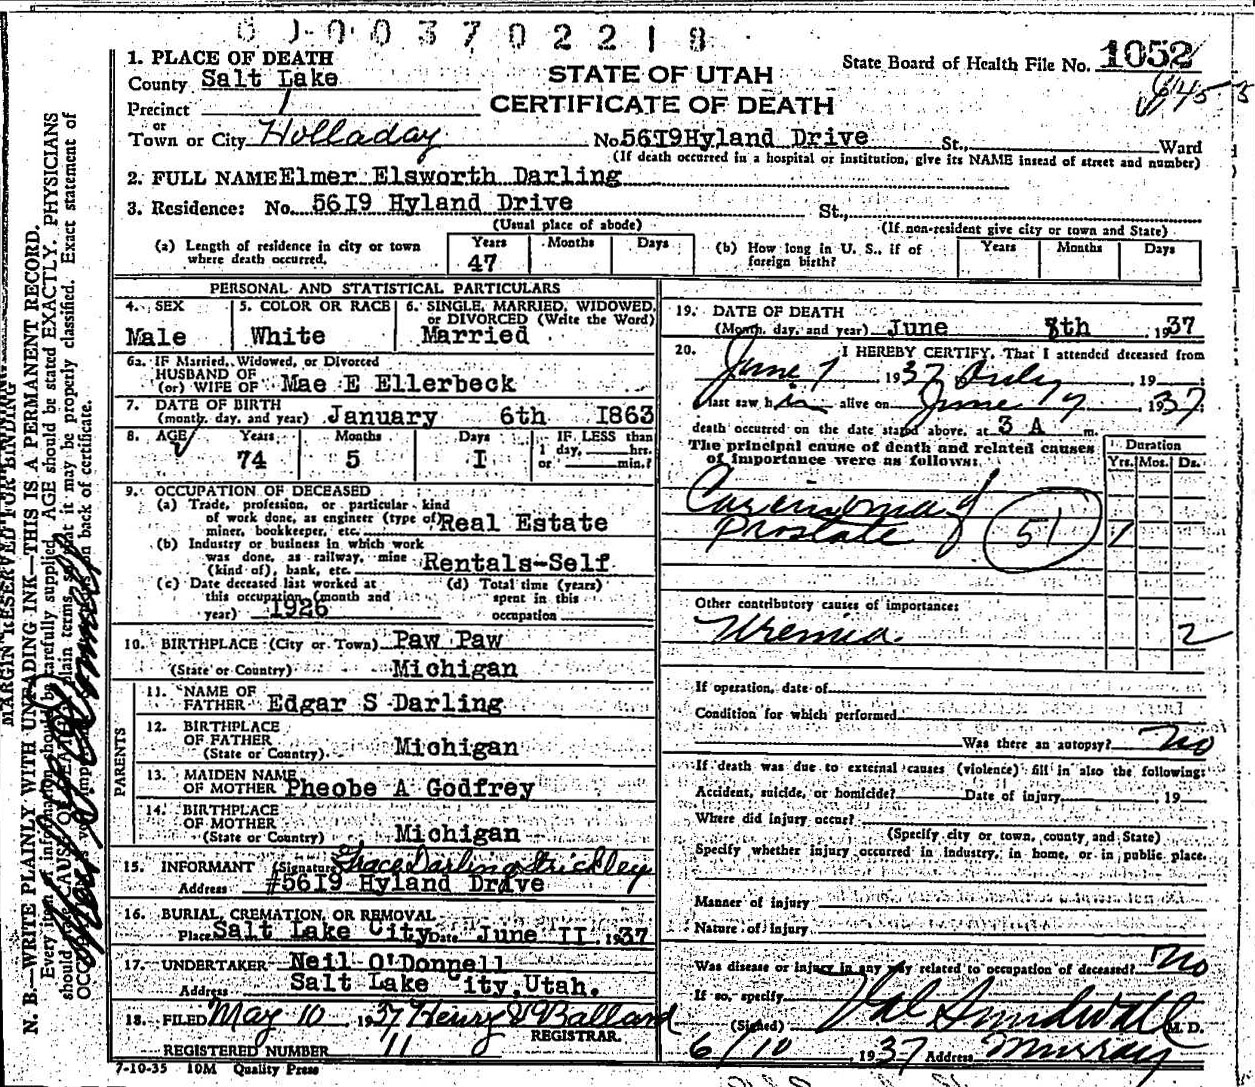 3702218
1. PLACE OF DEATH
County Salt Lake
Precinct 1
or
Town or City Holladay
STATE OF UTAH
CERTIFICATE OF DEATH
State Board of Health File No. 1052
645
No. 56I9 Hyland Drive St., Ward
(If death occurred in a hospital or institution, give its NAME instead of street and number)
2. FULL NAME Elmer Elsworth Darling
3. Residence: No. 56I9 Hyland Drive St.,
(Usual place of abode) (If non-resident give city or town and State)
(a) Length of residence in city or town where death occurred. Years 47 Months Days
(b) How long in U. S., if of foreign birth? Years Months Days
PERSONAL AND STATISTICAL PARTICULARS
4. SEX Male
5. COLOR OR RACE White
6. SINGLE, MARRIED, WIDOWED, or DIVORCED (Write the Word) Married
6a. IF Married, Widowed, or Divorced
HUSBAND OF
(or) WIFE OF Mae E Ellerbeck
7. DATE OF BIRTH
(month, day, and year) January 6th I863
8. AGE Years 74 Months 5 Days I
IF LESS than 1 day, hrs. or min.?
9. OCCUPATION OF DECEASED
(a) Trade, profession, or particular kind
of work done, as engineer (type of) Real Estate
miner, bookkeeper, etc.
(b) Industry or business in which work
was done, as railway, mine
(kind of), bank, etc. Rentals-Self
(c) Date deceased last worked at this occupation (month and year) 1926
(d) Total time (years) spent in this occupation
10. BIRTHPLACE (City or Town) Paw Paw
(State or Country) Michigan
PARENTS
11. NAME OF FATHER Edgar S Darling
12. BIRTHPLACE OF FATHER
(State or Country) Michigan
13. MAIDEN NAME OF MOTHER Pheobe A Godfrey
14. BIRTHPLACE OF MOTHER
(State or Country) Michigan
15. INFORMANT (Signature) Grace Darling Strickley
Address #56I9 Hyland Drive
16. BURIAL, CREMATION, OR REMOVAL
Place Salt Lake City Date June II 1937
17. UNDERTAKER Neil O'Donnell
Address Salt Lake City, Utah.
18. FILED May 10 1937 Henry Ballard
REGISTRAR.
REGISTERED NUMBER 11
7-10-35 10M Quality Press
19. DATE OF DEATH
(Month, day, and year) June 8th 1937
20. I HEREBY CERTIFY, That I attended deceased from
June 7 1937 19
I last saw him alive on June 7 1937
death occurred on the date stated above, at 3 A m.
The principal cause of death and related causes
of importance were as follows:
Duration
Yrs. Mos. Ds.
Carcinoma of
Prostate 51 1
Other contributory causes of importance:
Uremia. 2
If operation, date of
Condition for which performed
Was there an autopsy? no
If death was due to external causes (violence) fill in also the following:
Accident, suicide, or homicide? Date of injury 19
Where did injury occur?
(Specify city or town, county and State)
Specify whether injury occurred in industry, in home, or in public place.
Manner of injury
Nature of injury
Was disease or injury in any way related to occupation of deceased? no
If so, specify
(Signed) Val Sundwall M. D.
6/10 1937 Address Murray
MARGIN RESERVED FOR BINDING
N. B.—WRITE PLAINLY WITH UNFADING INK—THIS IS A PERMANENT RECORD.
Every item of information should be carefully supplied. AGE should be stated EXACTLY. PHYSICIANS
should state CAUSE OF DEATH in plain terms, so that it may be properly classified. Exact statement of
OCCUPATION is very important. back of certificate.